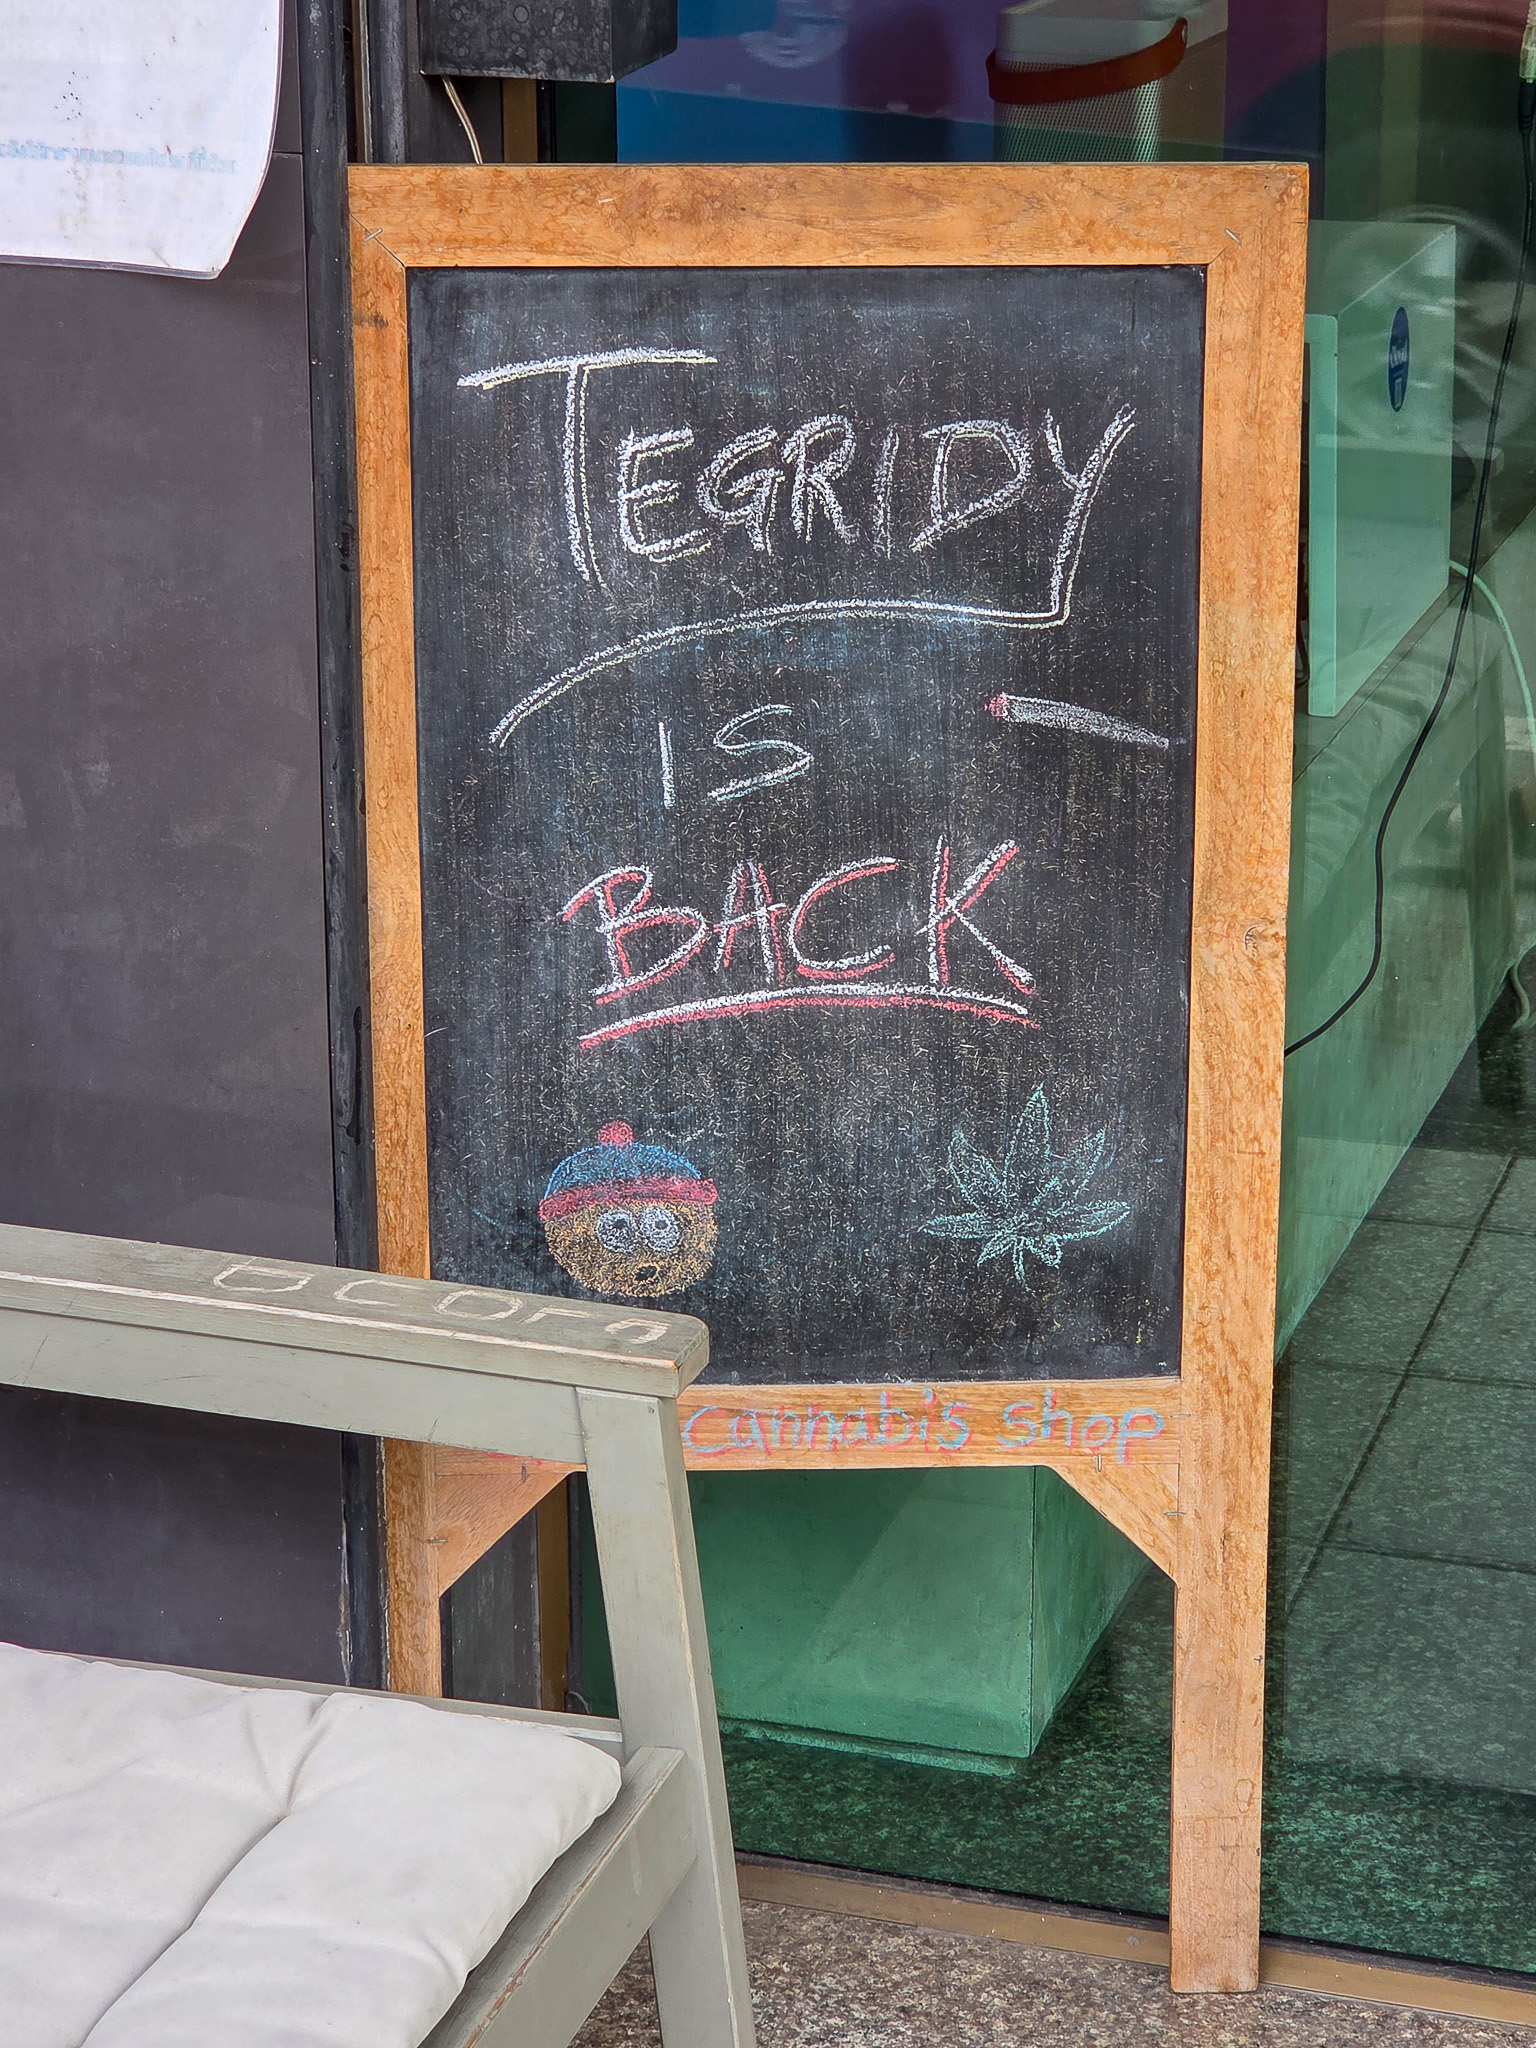 TEGRIDY
IS
BACK
cannabis shop